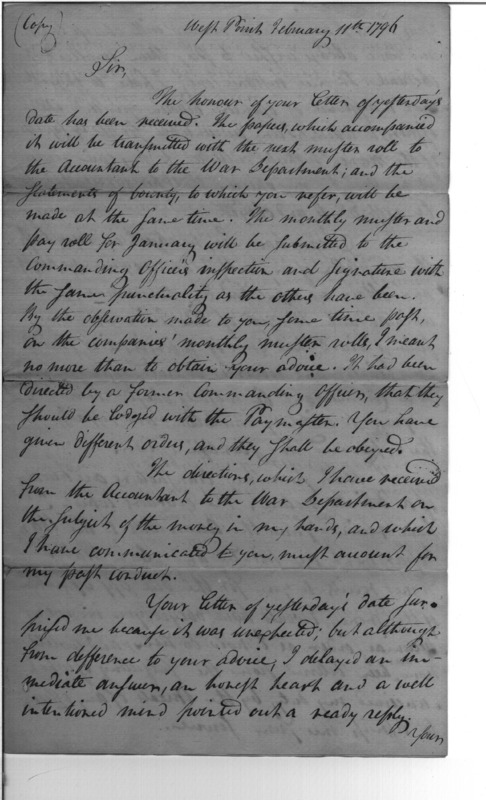 (Copy)
West Point February 11th 1796
Sir,
The honour of your letter of yesterday's
date has been received. The papers, which accompanied
it will be transmitted with the next muster roll to
the Accountant to the War Department; and the
statements of bounty, to which you refer, will be
made at the same time. The monthly muster and
pay roll for January will be submitted to the
Commanding Officer's inspection and signature with
the same punctuality as the others have been.
By the observation made to you, some time past,
on the companies' monthly muster rolls, I meant
no more than to obtain your advice. It had been
directed by a former Commanding Officer, that they
should be lodged with the Paymaster. You have
given different orders, and they shall be obeyed.
The directions, which I have received
from the Accountant to the War Department on
the subject of the money in my hands, and which
I have communicated to you, must account for
my past conduct.
Your letter of yesterday's date sur-
prised me because it was unexpected; but although
from difference to your advice, I delayed an im-
mediate answer, an honest heart and a well
intentioned mind pointed out a ready reply.
Yours